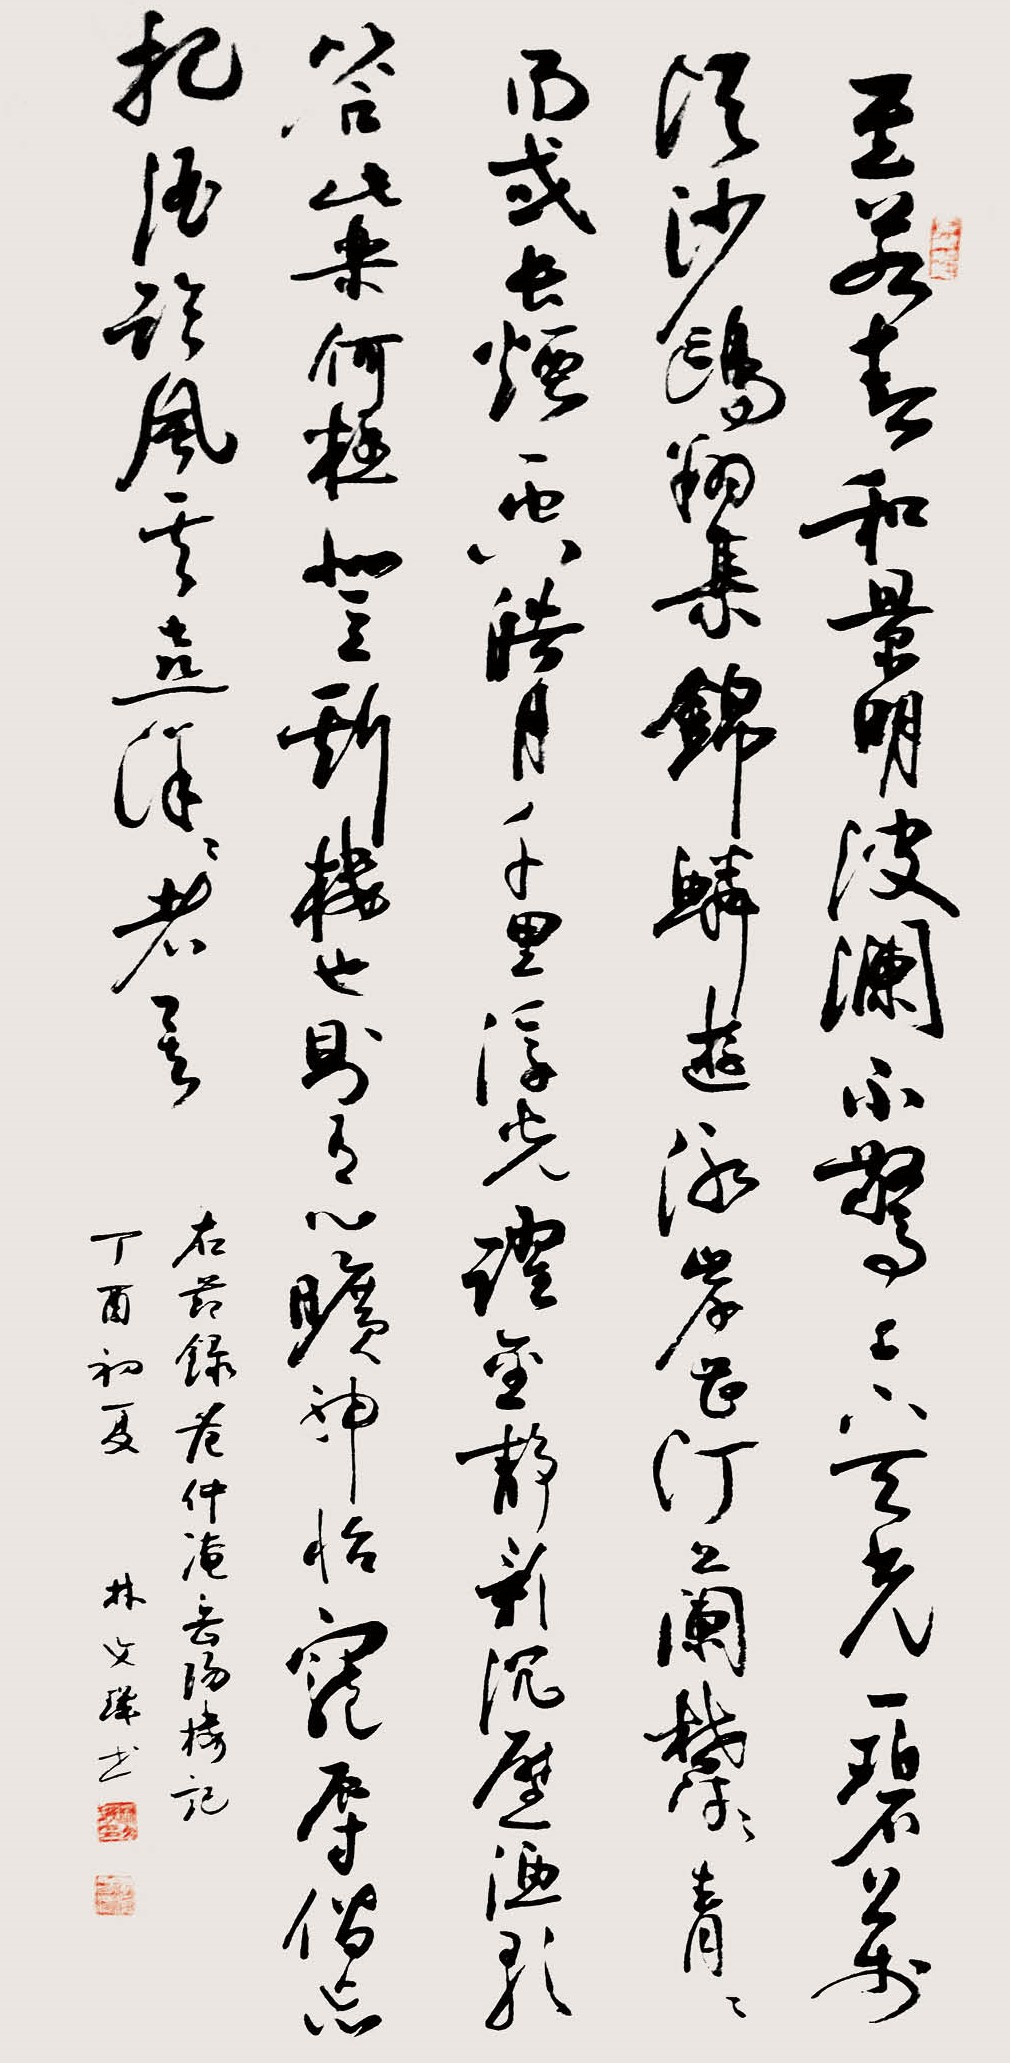 至若春和景明波瀾不驚上下天光一碧萬
頃沙鷗翔集錦鱗遊泳岸芷汀蘭鬱〻青〻
而或長煙一空皓月千里浮光躍金靜影沉璧漁歌
答此樂何極登斯樓也則有心曠神怡寵辱偕忘
把酒臨風其喜洋〻者矣
右節錄范仲淹岳陽樓記
丁酉初夏 林文書